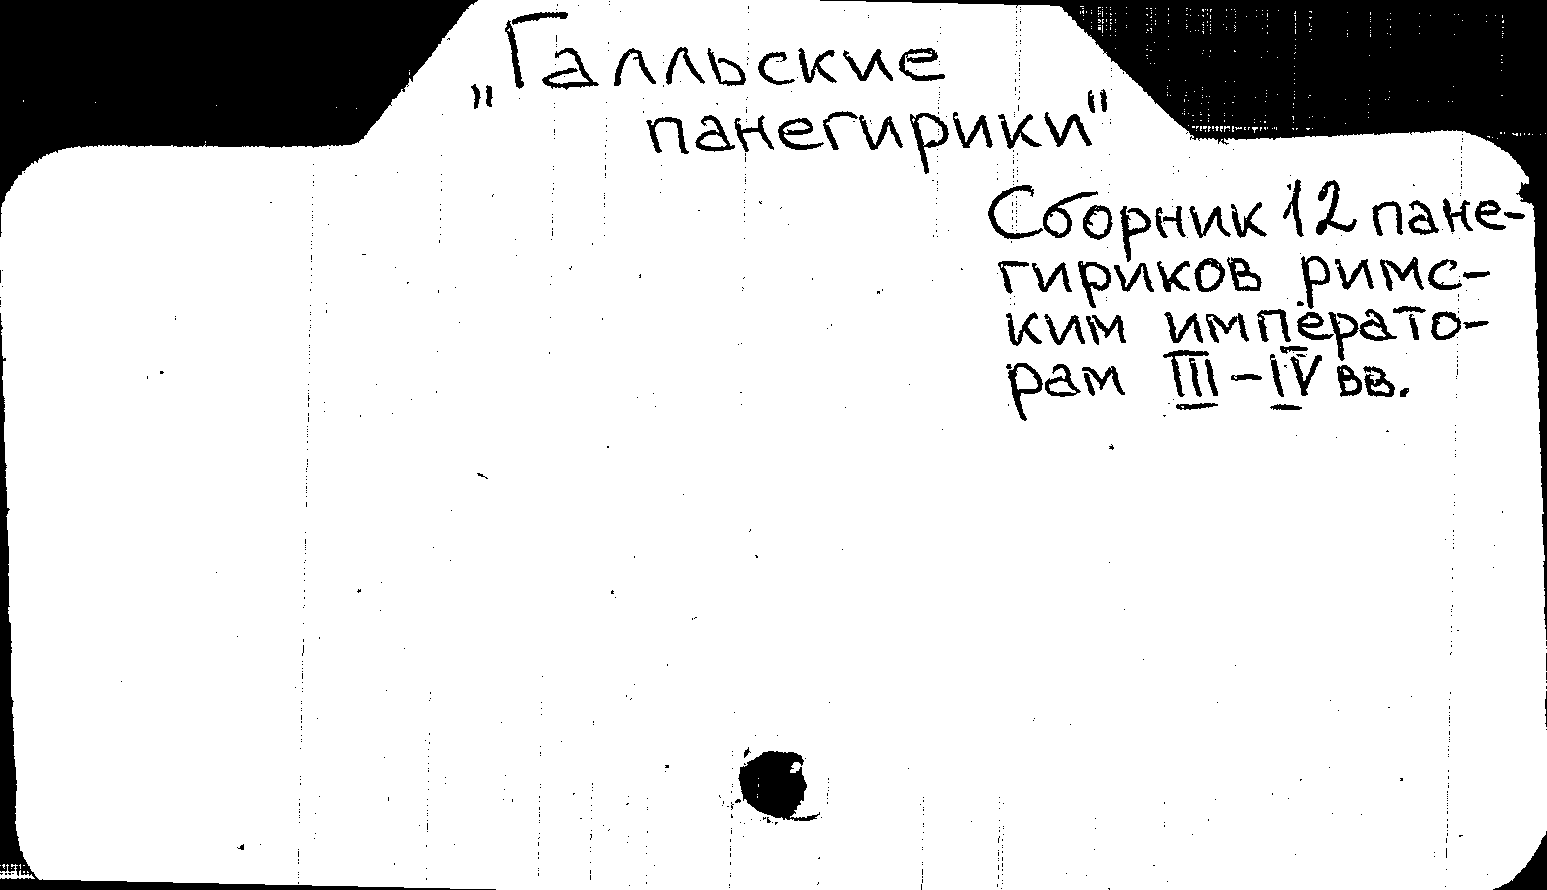 „Галльские
панегирики"
Сборник 12 пане-
гириков римс-
ким императо-
рам III-IV вв.